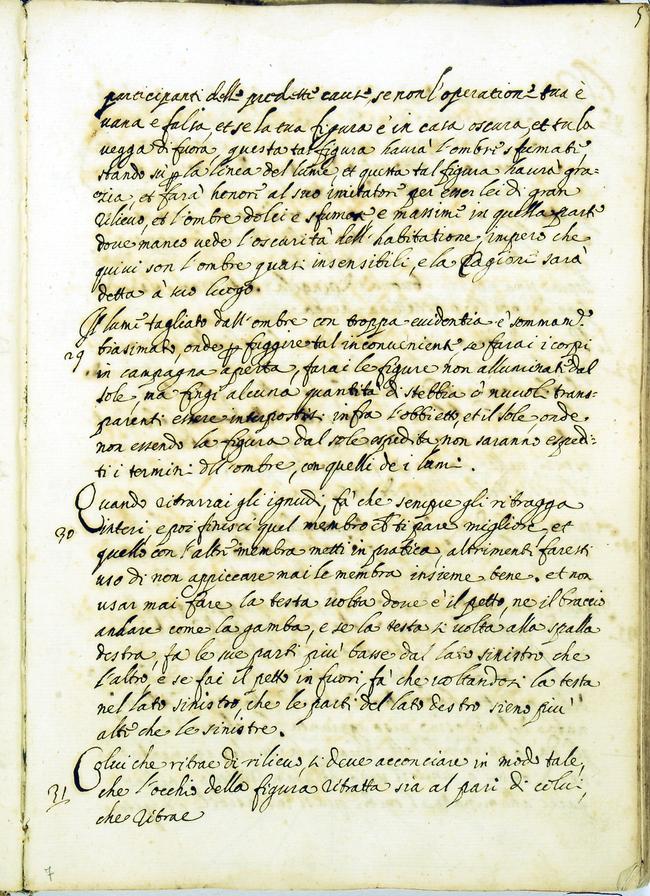 5
participanti delle predette cause, se non l'operatione tua è
uana e falsa, et se la tua figura è in casa oscura, et tu la
uegga di fuora, questa tal figura haurà l'ombre sfumate,
stando su p la linea del lume, et questa tal figura haurà gra=
zia, et farà honore al suo imitatore per esser lei di gran
rilieuo, et l'ombre dolci e sfumose e massime in quella parte
doue manco uede l'oscurità dell'habitatione, impero che
quiui son l'ombre quasi insensibili, e la Cagione sarà
detta à suo luogo.
Il lume tagliato dall'ombre con troppa euidentia è sommam.te
29
biasimato, onde p fuggire tal inconueniente, se farai i corpi
in campagna aperta, farai le figure non alluminate dal
sole, ma fingi alcuna quantità di nebbia ò nuuoli trans=
parenti essere interposti infra l'obbietto, et il sole onde,
non essendo la figura dal sole espedita, non saranno espedi=
ti i termini dell'ombre, con quelli de i lumi.
Quando ritrarrai gli ignudi, fà che sempre gli ritragga
30
interi, e poi finisci quel membro che ti pare migliore, et
quello con l'altre membra metti in pratica, altrimenti faresti
uso di non appiccare mai le membra insieme bene. et non
usar mai fare la testa uolta doue è il petto, ne il braccio
andare come la gamba, e se la testa si uolta alla spalla
destra, fa le sue parti piu basse dal lato sinistro che
l'altro, e se fai il petto in fuori, fà che uoltandosi la testa
nel lato sinistro, che le parti del lato destro sieno piu
alte che le sinistre.
Colui che ritrae di rilieuo, si deue acconciare in modo tale,
31
che l'occhio della figura ritratta sia al pari di colui,
che ritrae
7